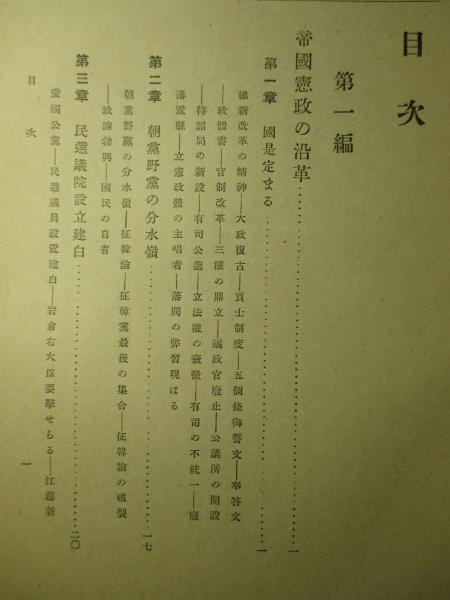 目次
第一編
帝國憲政の沿革……………………一
第一章 國是定まる……………………一
維新改革の精神―大政復古―貢士制度―五個條御誓文―奉答文
―政體書―官制改革―三權の鼎立―議政官廢止―公議所の開設
―待詔局の新設―有司公選―立法權の衰微―有司の不統一―廢
藩置縣―立憲政體の主唱者―藩閥の弊習現はる
第二章 朝黨野黨の分水嶺……………………一七
朝黨野黨の分水嶺―征韓論―征韓黨最後の集合―征韓論の破裂
―政論勃興―國民の自省
第三章 民選議院設立建白……………………二〇
愛國公黨―民選議員設置建白―岩倉右大臣要擊せらる―江藤新
目次 一